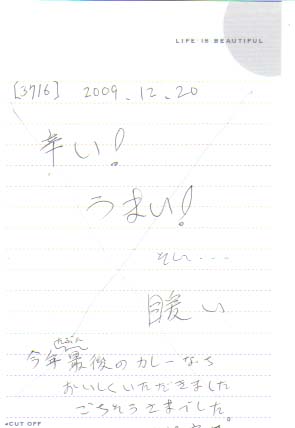 LIFE IS BEAUTIFUL
[3716] 2009.12.20
辛い!
うまい!
そして...
暖い
たぶん
今年最後のカレーなち
おいしくいただきました
ごちそうさまでした。
*CUT OFF